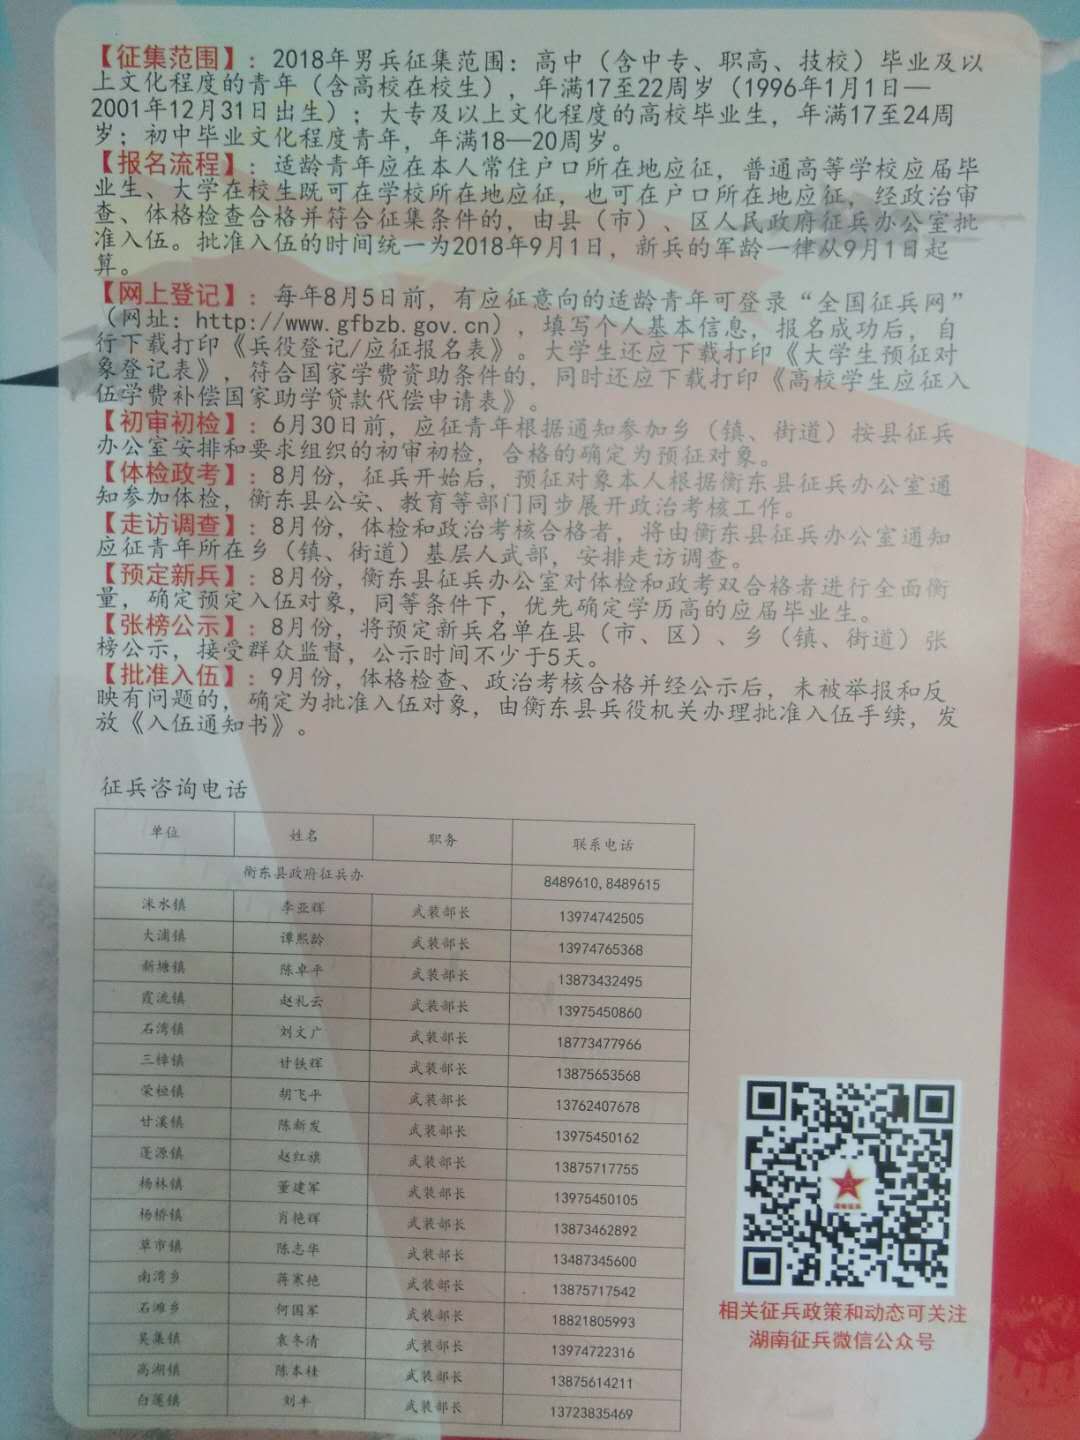 【征集范围】：2018年男兵征集范围：高中（含中专、职高、技校）毕业及以
上文化程度的青年（含高校在校生），年满17至22周岁（1996年1月1日—
2001年12月31日出生）；大专及以上文化程度的高校毕业生，年满17至24周
岁；初中毕业文化程度青年，年满18—20周岁。
【报名流程】：适龄青年应在本人常住户口所在地应征，普通高等学校应届毕
业生、大学在校生既可在学校所在地应征，也可在户口所在地应征，经政治审
查、体格检查合格并符合征集条件的，由县（市）、区人民政府征兵办公室批
准入伍。批准入伍的时间统一为2018年9月1日，新兵的军龄一律从9月1日起
算。
【网上登记】：每年8月5日前，有应征意向的适龄青年可登录“全国征兵网”
（网址：http://www.gfbzb.gov.cn），填写个人基本信息，报名成功后，自
行下载打印《兵役登记/应征报名表》。大学生还应下载打印《大学生预征对
象登记表》，符合国家学费资助条件的，同时还应下载打印《高校学生应征入
伍学费补偿国家助学贷款代偿申请表》。
【初审初检】：6月30日前，应征青年根据通知参加乡（镇、街道）按县征兵
办公室安排和要求组织的初审初检，合格的确定为预征对象。
【体检政考】：8月份，征兵开始后，预征对象本人根据衡东县征兵办公室通
知参加体检，衡东县公安、教育等部门同步展开政治考核工作。
【走访调查】：8月份，体检和政治考核合格者，将由衡东县征兵办公室通知
应征青年所在乡（镇、街道）基层人武部，安排走访调查。
【预定新兵】：8月份，衡东县征兵办公室对体检和政考双合格者进行全面衡
量，确定预定入伍对象，同等条件下，优先确定学历高的应届毕业生。
【张榜公示】：8月份，将预定新兵名单在县（市、区）、乡（镇、街道）张
榜公示，接受群众监督，公示时间不少于5天。
【批准入伍】：9月份，体格检查、政治考核合格并经公示后，未被举报和反
映有问题的，确定为批准入伍对象，由衡东县兵役机关办理批准入伍手续，发
放《入伍通知书》。
征兵咨询电话
单位 姓名 职务 联系电话
衡东县政府征兵办 8489610,8489615
洣水镇 李亚辉 武装部长 13974742505
大浦镇 谭熙龄 武装部长 13974765368
新塘镇 陈卓平 武装部长 13873432495
霞流镇 赵礼云 武装部长 13975450860
石湾镇 刘文广 武装部长 18773477966
三樟镇 甘铁辉 武装部长 13875653568
荣桓镇 胡飞平 武装部长 13762407678
甘溪镇 陈新发 武装部长 13975450162
蓬源镇 赵红旗 武装部长 13875717755
杨林镇 董建军 武装部长 13975450105
杨桥镇 肖艳辉 武装部长 13873462892
草市镇 陈志华 武装部长 13487345600
南湾乡 蒋寒艳 武装部长 13875717542
石滩乡 何国军 武装部长 18821805993
吴集镇 袁冬清 武装部长 13974722316
高湖镇 陈本桂 武装部长 13875614211
白莲镇 刘丰 武装部长 13723835469
相关征兵政策和动态可关注
湖南征兵微信公众号